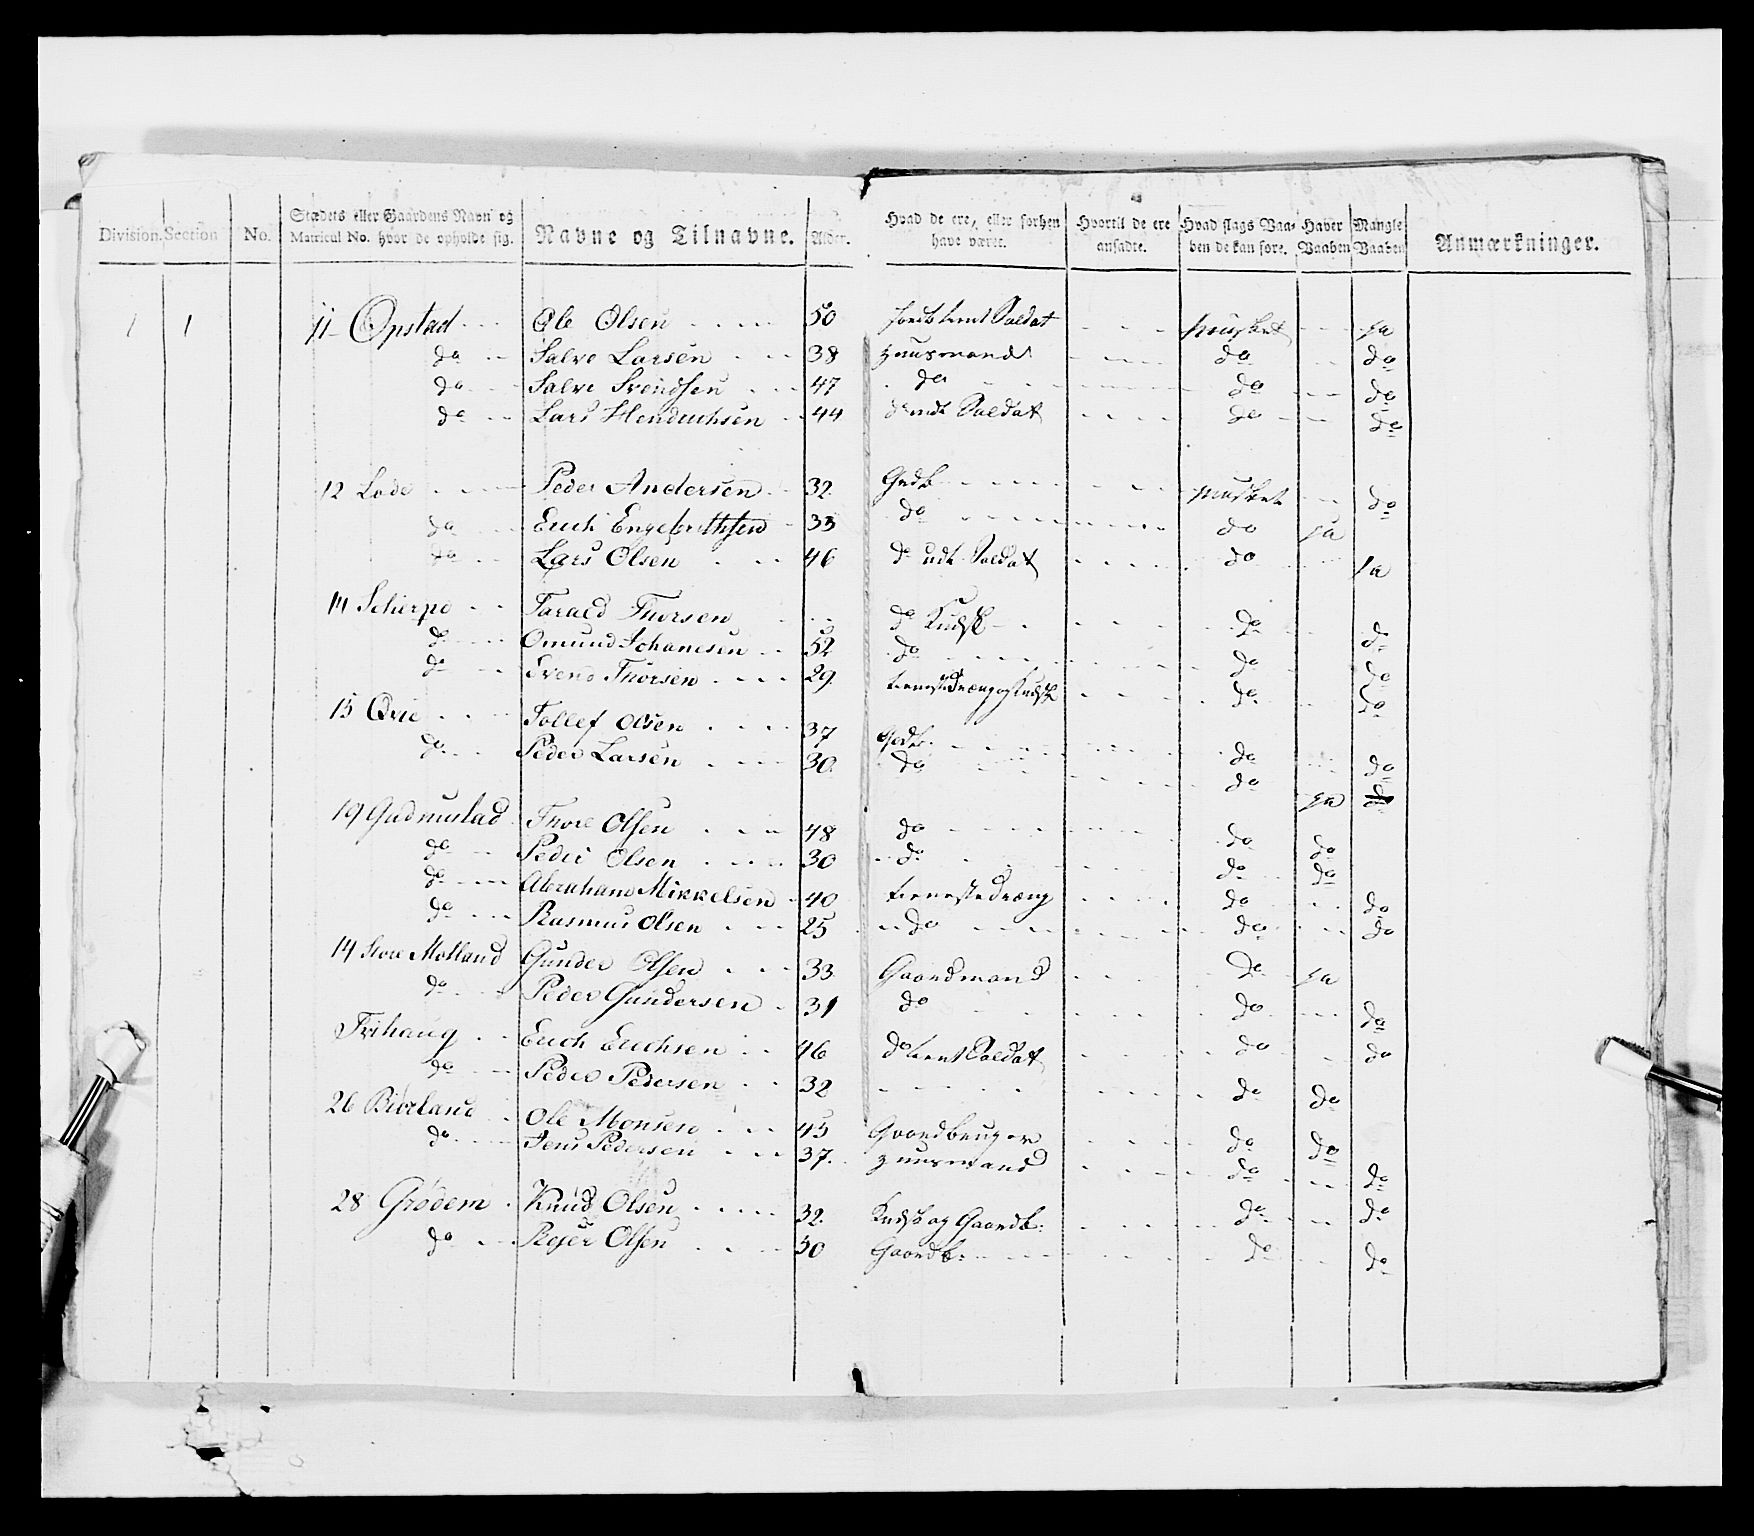 Division. Section No. Stædets eller Gaardens Navn og Matricul No. hvor de opholde sig. Navne og Tilnavne. Alder. Hvad de ere, eller forhen have været. Hvortil de ere ansadte. Hvad slags Vaaben de kan føre. Haver Vaaben Mangle Vaaben Anmærkninger.
1 1 11 Opstad Ole Olsen 50 Soldat Musket Ja
do Salve Larsen 38 Huusmand do do
do Salve Svendsen 47 do do do
do Lars Hendrichsen 44 do udt Soldat do do
12 Lode Peder Andersen 32. Grdb Musket do
do Erich Engebrethsen 33 do do Ja
do Lars Olsen 46 do udt Soldat do Ja
14 Scherpe Tarald Thorsen do Kudsk do do
do Omund Johanesen 52 do do do
do Svend Thorsen 29. do do
15 Qvie Tollef Olsen 37 Grdb. do do
do Peder Larsen 30. do do Ja do
19 Gudmestad Thore Olsen 48 do do do
do Peder Olsen 30 do do do
do Abraham Mikkelsen 40 tienestedreng do do
do Rasmus Olsen 25 do do do
14 Store Motland Gunder Olsen 33. Gaardmand do Ja
do Peder Gundersen 31 do do do
Tvihaug Erich Erichsen 46 do tient Soldat do do
do Peder Pedersen 32 do do
26 Biorland Ole Monsen 45 Gaardbruger do do
do Jens Pedersen 37. Huusmand do do
28 Grödem Knud Olsen 32. Kudsk og Gaardb: do do
do Rejer Olsen 30 Gaardb: do do